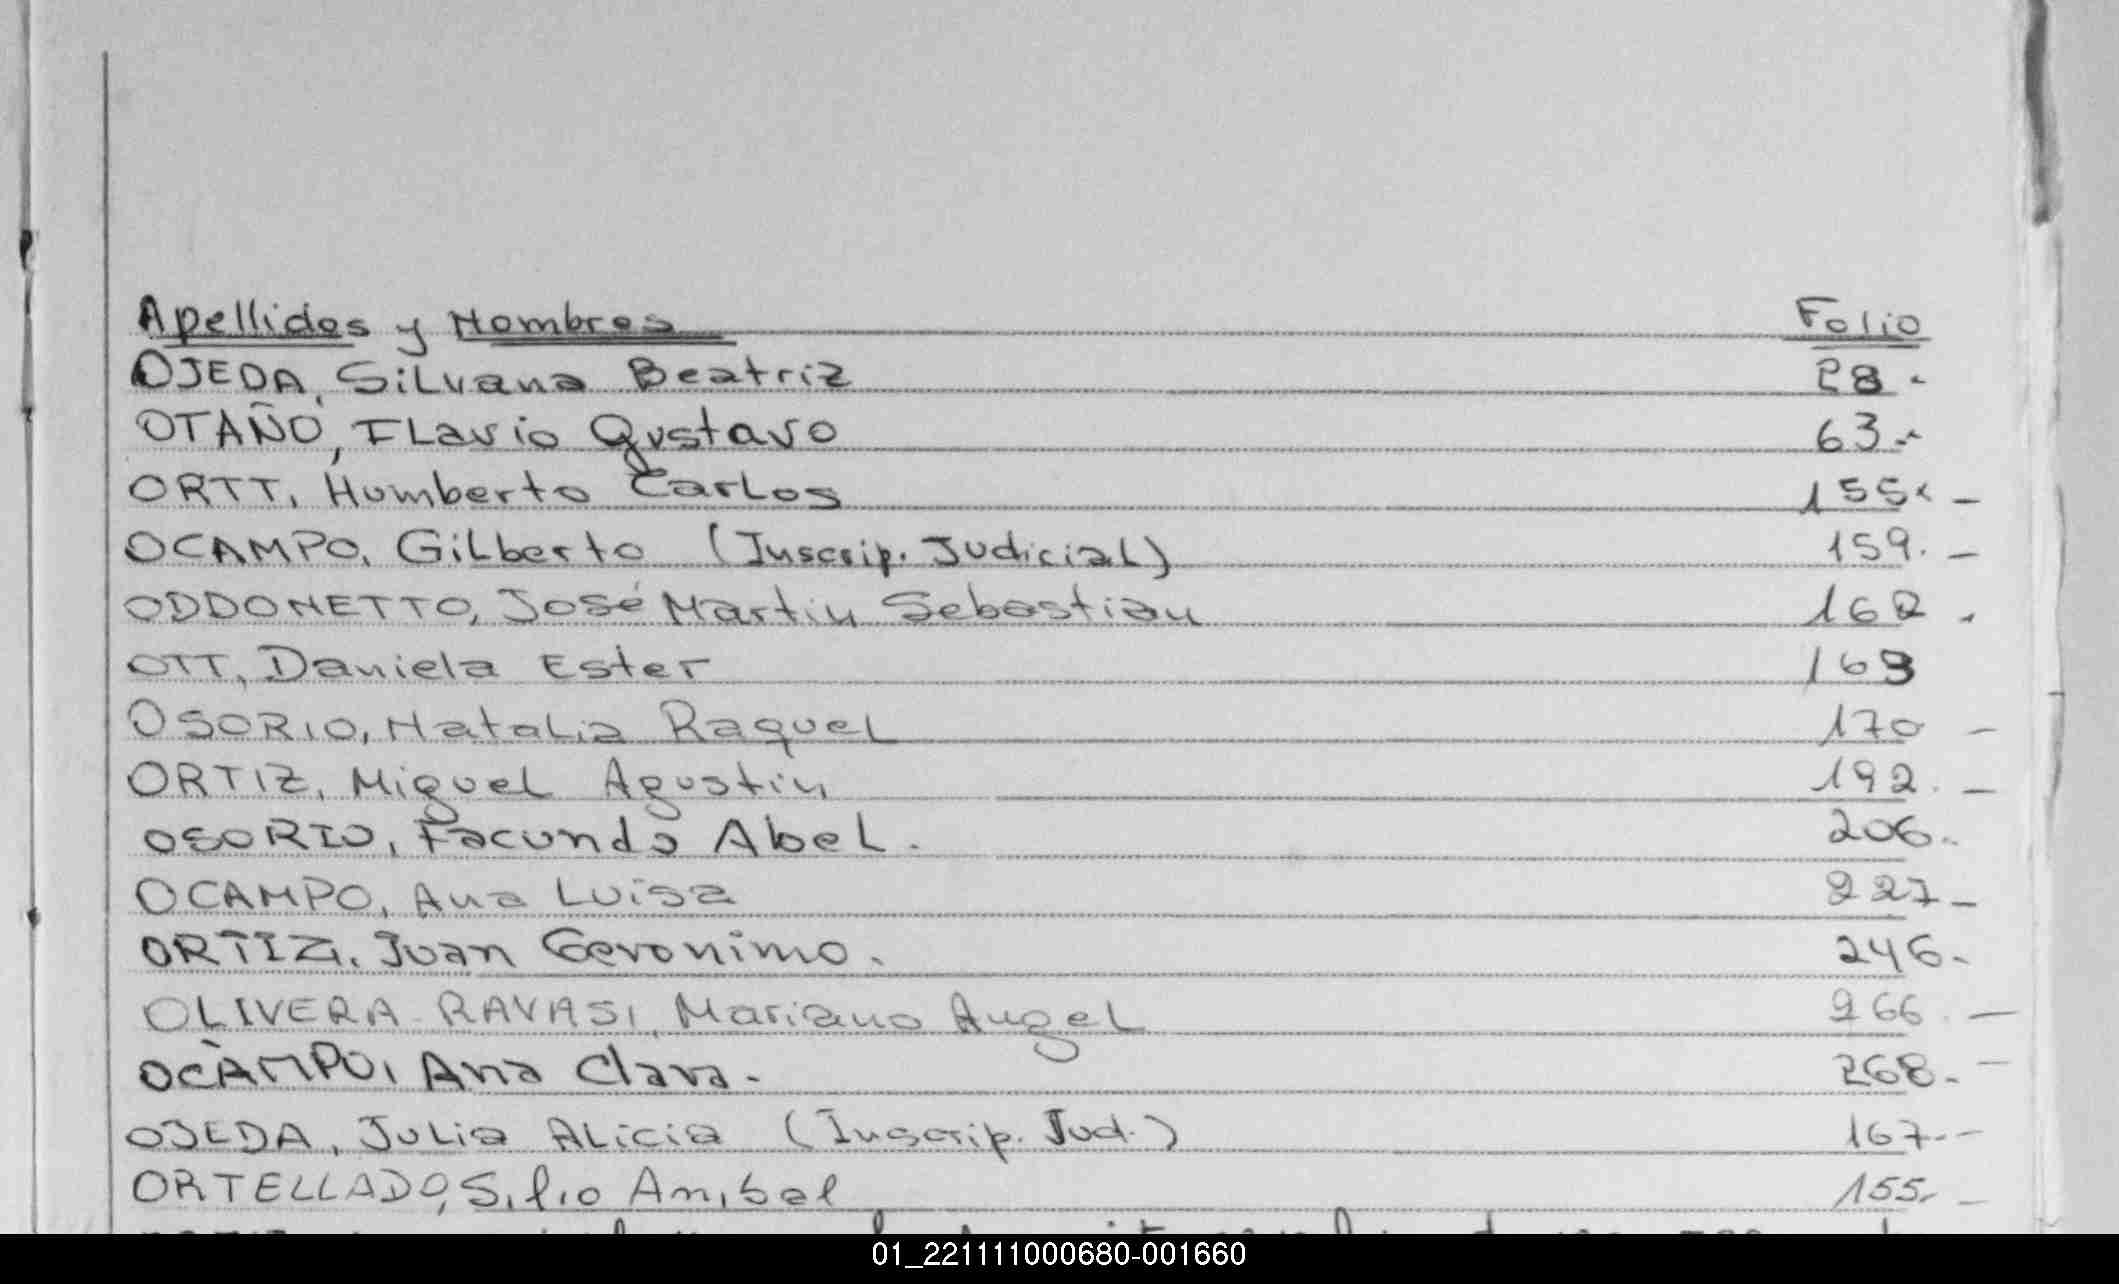 Apellidos y Nombres Folio
OJEDA, Silvana Beatriz 28.
OTAÑO, Flavio Gustavo 63.-
ORTT, Humberto Carlos 155. -
OCAMPO, Gilberto (Inscrip. Judicial) 159. -
ODDONETTO, José Martin Sebastian 162 .
OTT, Daniela Ester 169
OSORIO, Natalia Raquel 170 -
ORTIZ, Miguel Agustin 192. -
OSORIO, Facundo Abel. 206.
OCAMPO, Ana Luisa 227 -
ORTIZ, Juan Geronimo. 246.
OLIVERA RAVASI, Mariano Angel 266. -
OCAMPO, Ana Clara. 268. -
OJEDA, Julia Alicia (Inscrip. Jud.) 167. -
ORTELLADO, Silvio Anibal 155. -
01_221111000680-001660